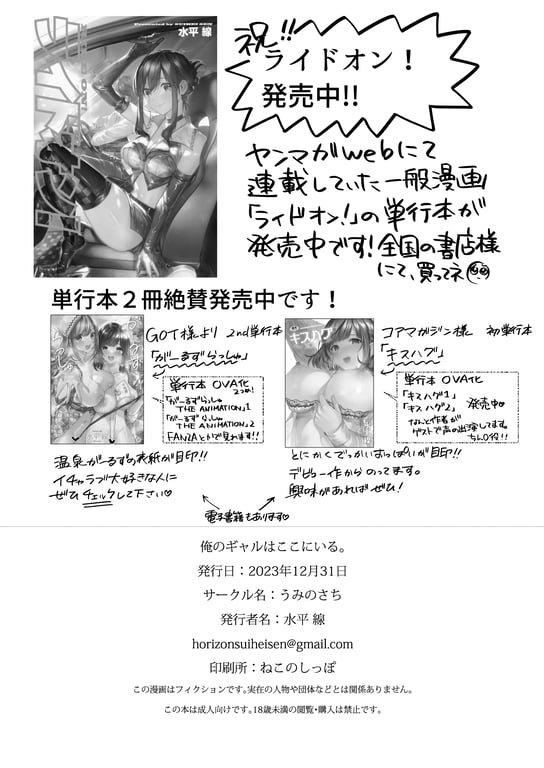 Presented by SUIHEI SEN
水平 線
祝!!
ライドオン！
発売中!!
ヤンマガwebにて
連載していた一般漫画
「ライドオン！」の単行本が
発売中です！全国の書店様
にて、買ってネ
単行本２冊絶賛発売中です！
GOT様より 2nd単行本
「がーるずらっしゅ」
単行本 OVA化
2つめ!
「がーるずらっしゅ
THE ANIMATION」1
「がーるずらっしゅ
THE ANIMATION」2
FANZAとかで見れます!!
温泉がーるずの表紙が目印!!
イチャラブ大好きな人に
ぜひチェックして下さい♡
キスハグ
コアマガジン様 初単行本
「キスハグ」
単行本 OVA化
「キスハグ1」
「キスハグ2」 発売中♡
なんと作者が
ゲストで声の出演してます。
とにかくでっかいおっぱいが目印!!
デビュー作からのってます。
興味があればぜひ!
電子書籍もあります♡
俺のギャルはここにいる。
発行日：2023年12月31日
サークル名：うみのさち
発行者名：水平 線
horizonsuiheisen@gmail.com
印刷所：ねこのしっぽ
この漫画はフィクションです。実在の人物や団体などとは関係ありません。
この本は成人向けです。18歳未満の閲覧・購入は禁止です。